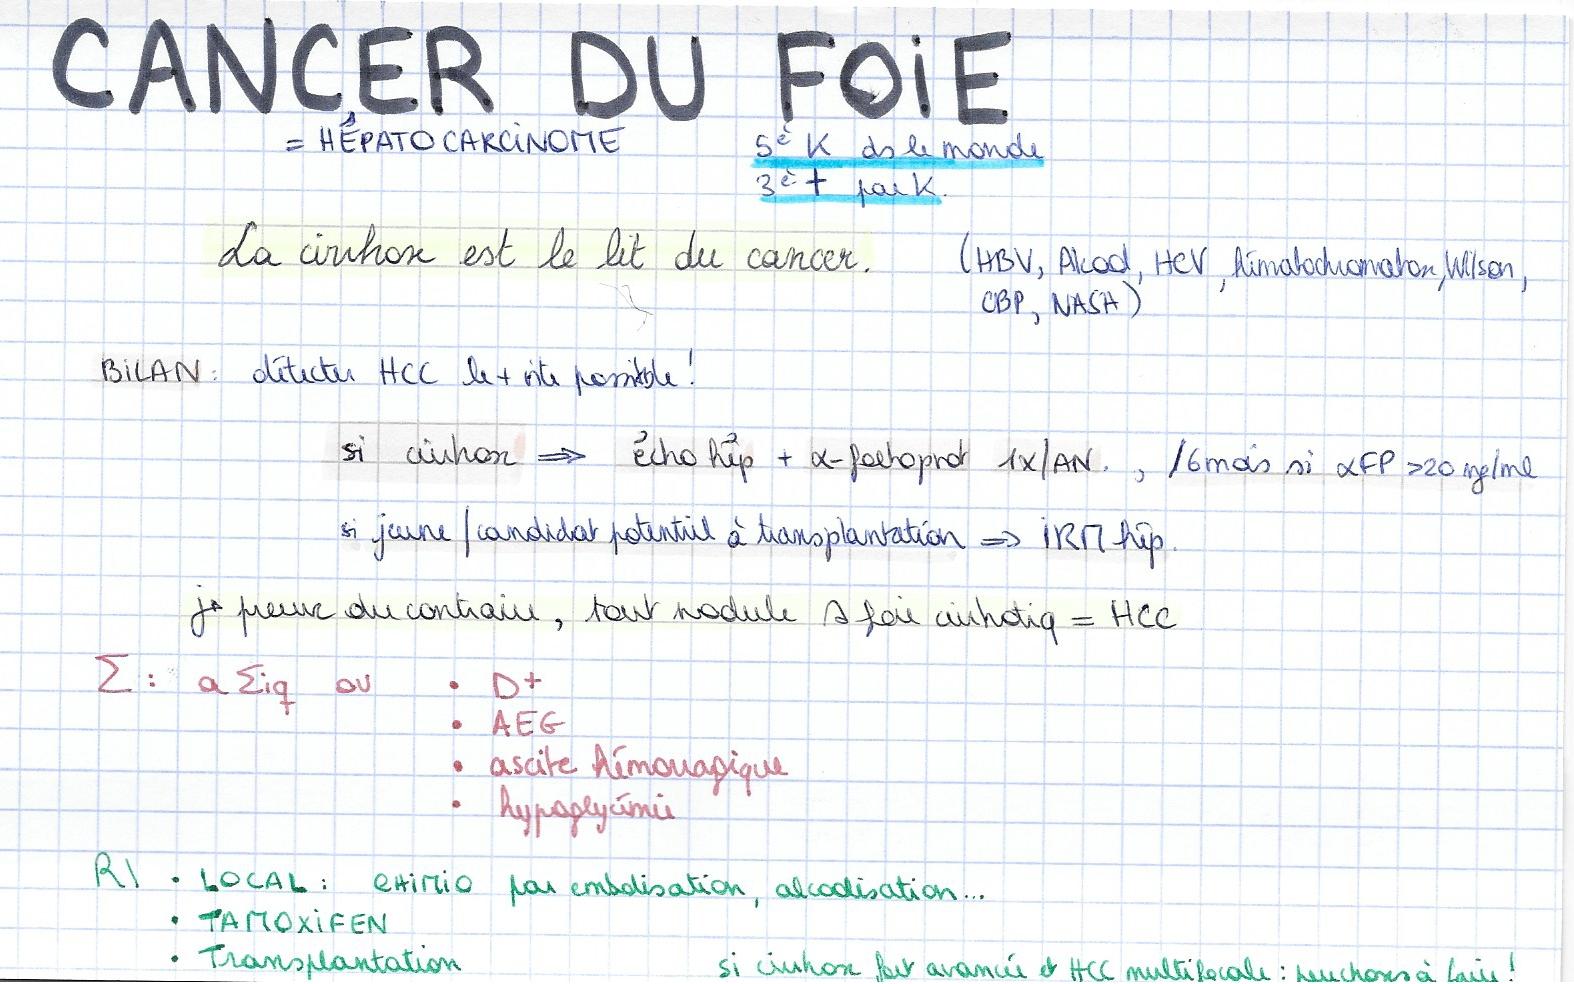 CANCER DU FOIE
= HÉPATOCARCINOME
5è K ds le monde
3è † par K.
La cirrhose est le lit du cancer.
(HBV, Alcool, HCV, hémochromatose, Wilson,
CBP, NASH)
BILAN: détecter HCC le + vite possible!
si cirrhose ⇒ écho hép + α-foetoprot 1x/AN. , /6mois si αFP >20 ng/ml
si jeune / candidat potentiel à transplantation ⇒ IRM hép.
js preuve du contraire, tout nodule foie cirrhotiq = HCC
Σ: a Σiq ou
• D+
• AEG
• ascite hémorragique
• hypoglycémie
R/ • LOCAL: CHIMIO par embolisation, alcoolisation...
• TAMOXIFEN
• Transplantation
si cirrhose fort avancée et HCC multifocale: peu choses à faire!